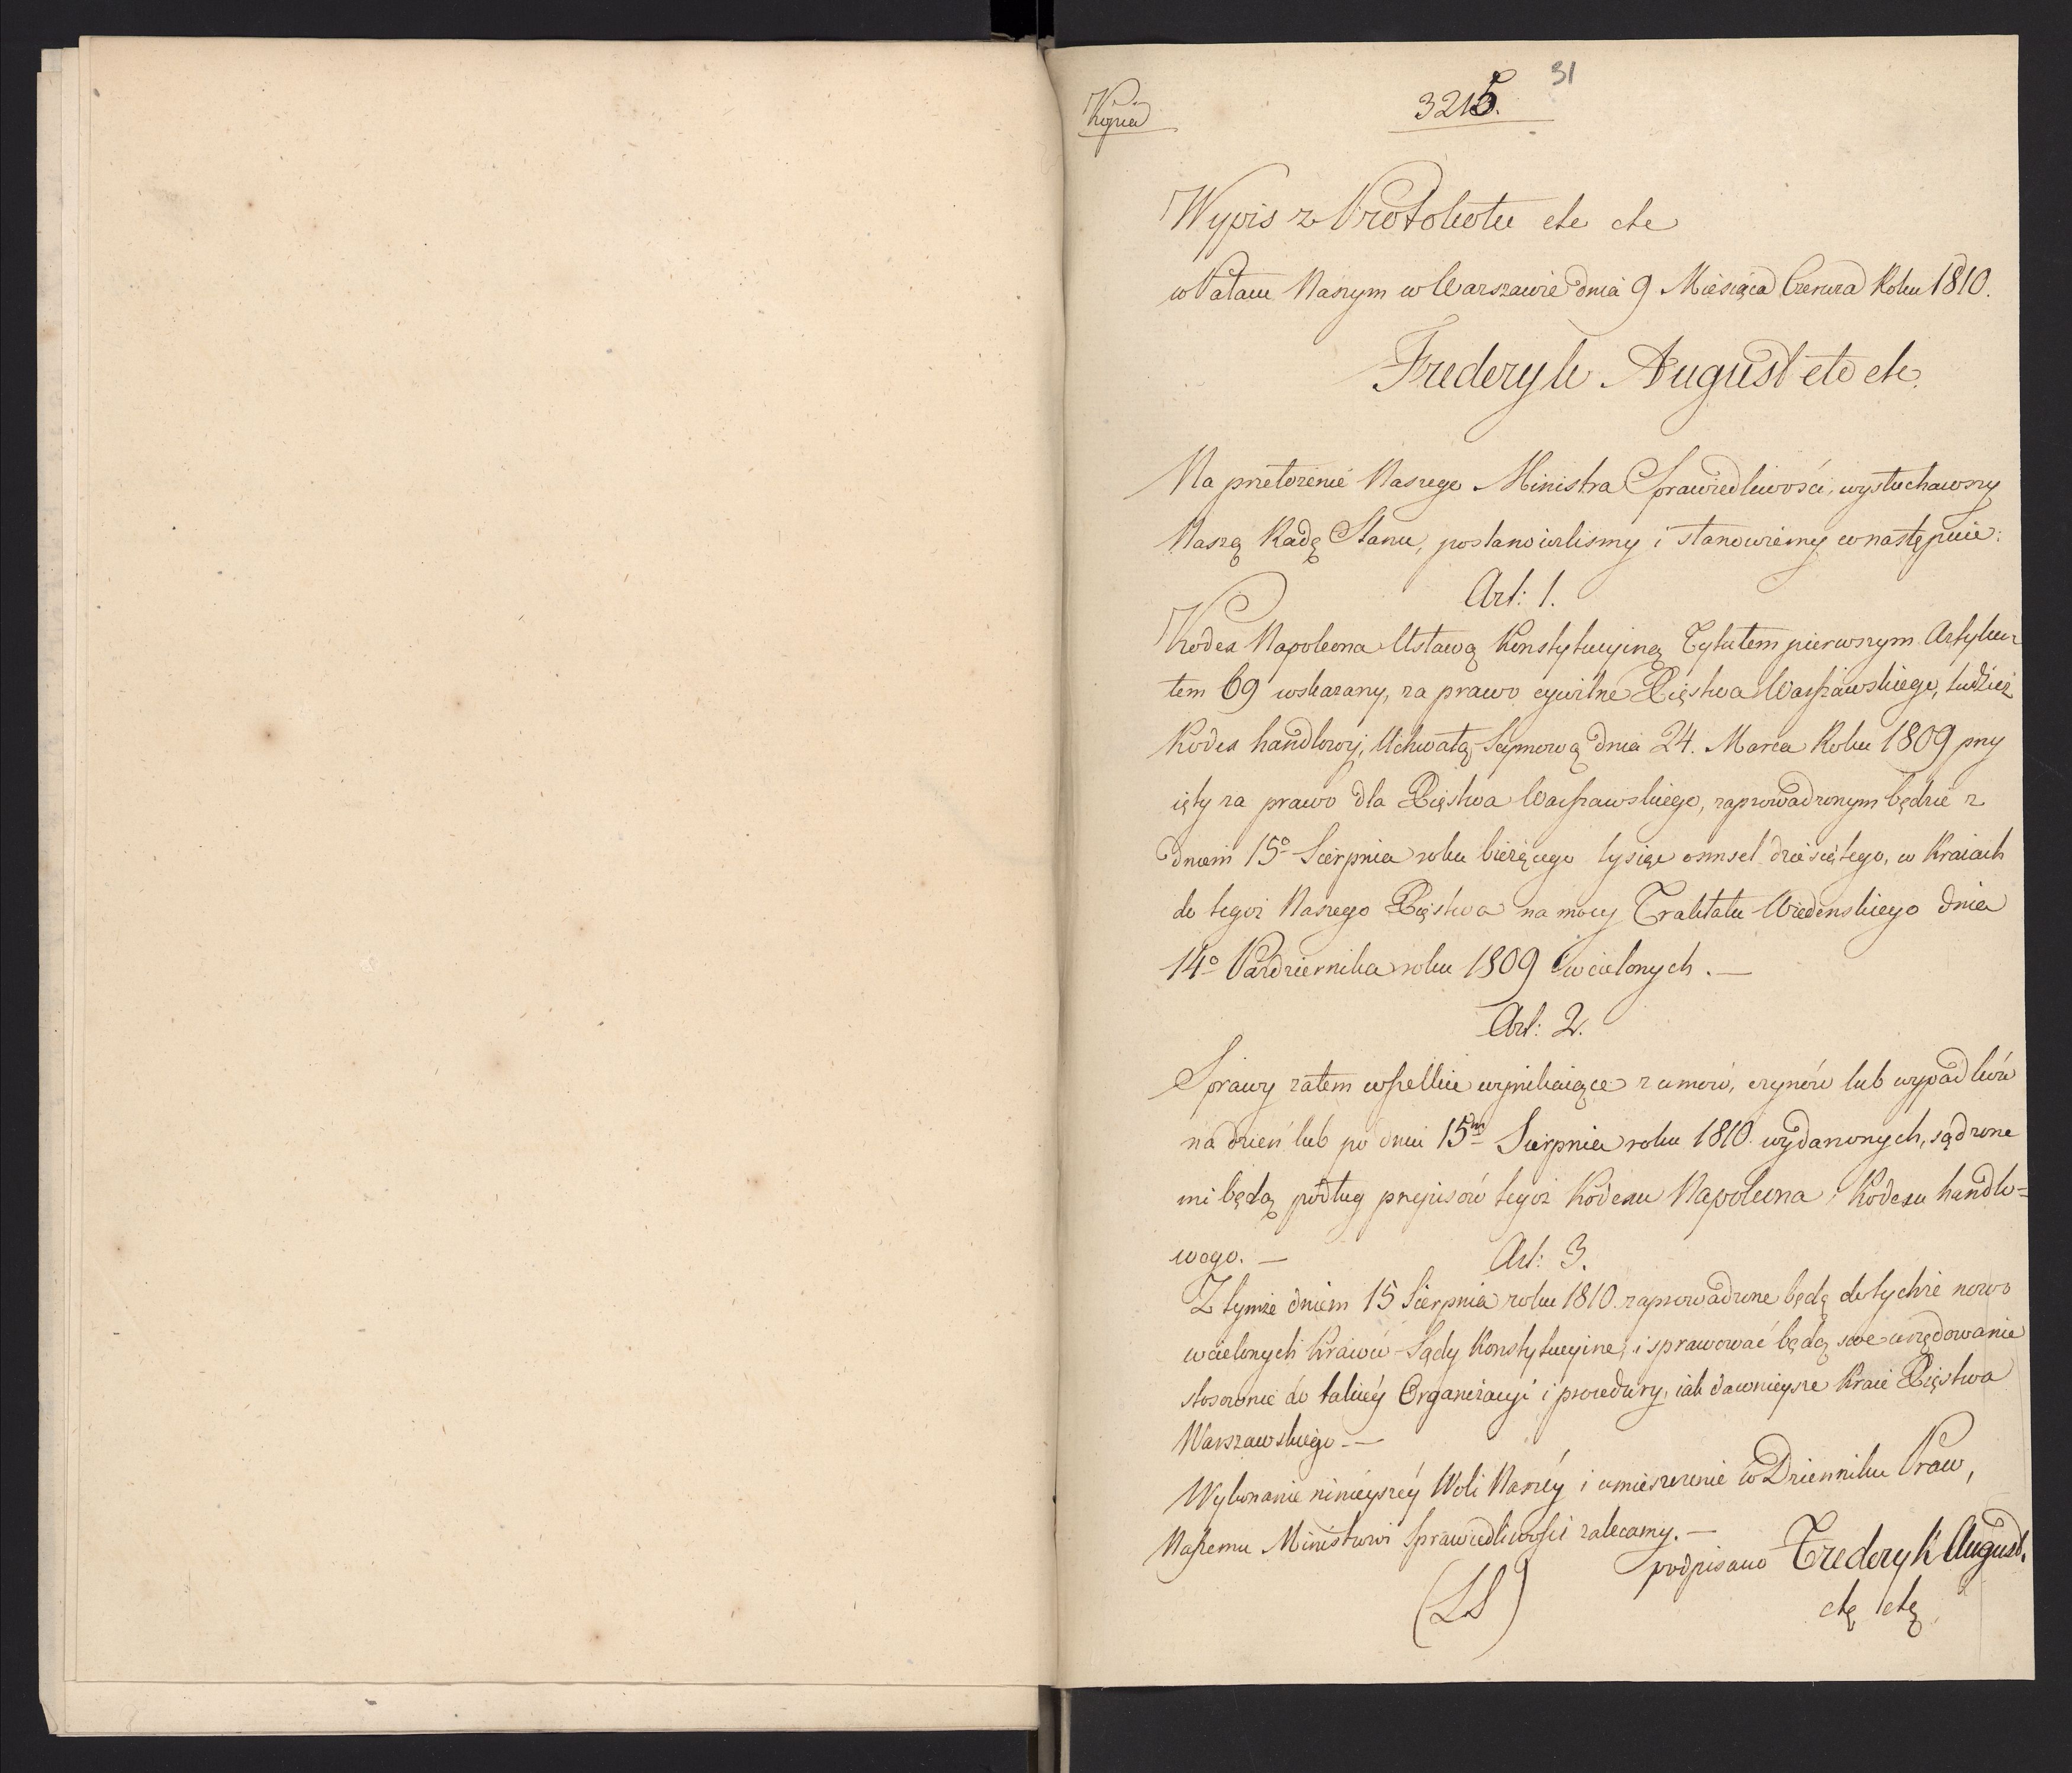 31
Kopia
3215.
Wypis z Protokołu etc etc
w Pałacu Naszym w Warszawie dnia 9 Miesiąca Czerwca Roku 1810.
Frederyk August etc etc.
Na przełożenie Naszego Ministra Sprawiedliwości, wysłuchawszy
Naszą Radę Stanu, postanowilismy i stanowiemy co następuie:
Art: 1.
Kodex Napoleona Ustawą Konstytucyiną Tytułem pierwszym Artyku-
łem 69 wskazany, za prawo cywilne Xięstwa Warszawskiego, tudzież
Kodex handlowy, Uchwałą Seymową dnia 24. Marca Roku 1809 przy
ięty za prawo dla Xięstwa Warszawskiego, zaprowadzonym będzie z
dniem 15o Sierpnia roku bieżącego tysiąc osmset dziesiętego, w Kraiach
do tegoż Naszego Xięstwa na mocy Traktatu Wiedenskiego dnia
14o Pazdziernika roku 1809 wcielonych. —
Art: 2.
Sprawy zatem wszelkie wynikaiące z umów, czynów lub wypadków
na dzień lub po dniu 15m Sierpnia roku 1810. wydarzonych, sądzone
mi będą podług przepisów tegoż Kodexu Napoleona i Kodexu handlo=
wego. —
Art: 3.
Z tymże dniem 15 Sierpnia roku 1810. zaprowadzone będą do tychże nowo
wcielonych Kraiów Sądy Konstytucyine, i sprawować będą swe urzędowanie
stosownie do takiéy Organizacyi i procedury, iak dawnieysze Kraie Xięstwa
Warszawskiego. —
Wykonanie ninieyszéy Woli Naszéy i umieszczenie w Dzienniku Praw,
Naszemu Ministrowi Sprawiedliwości zalecamy. —
podpisano Frederyk August.
(LS)
etc etc